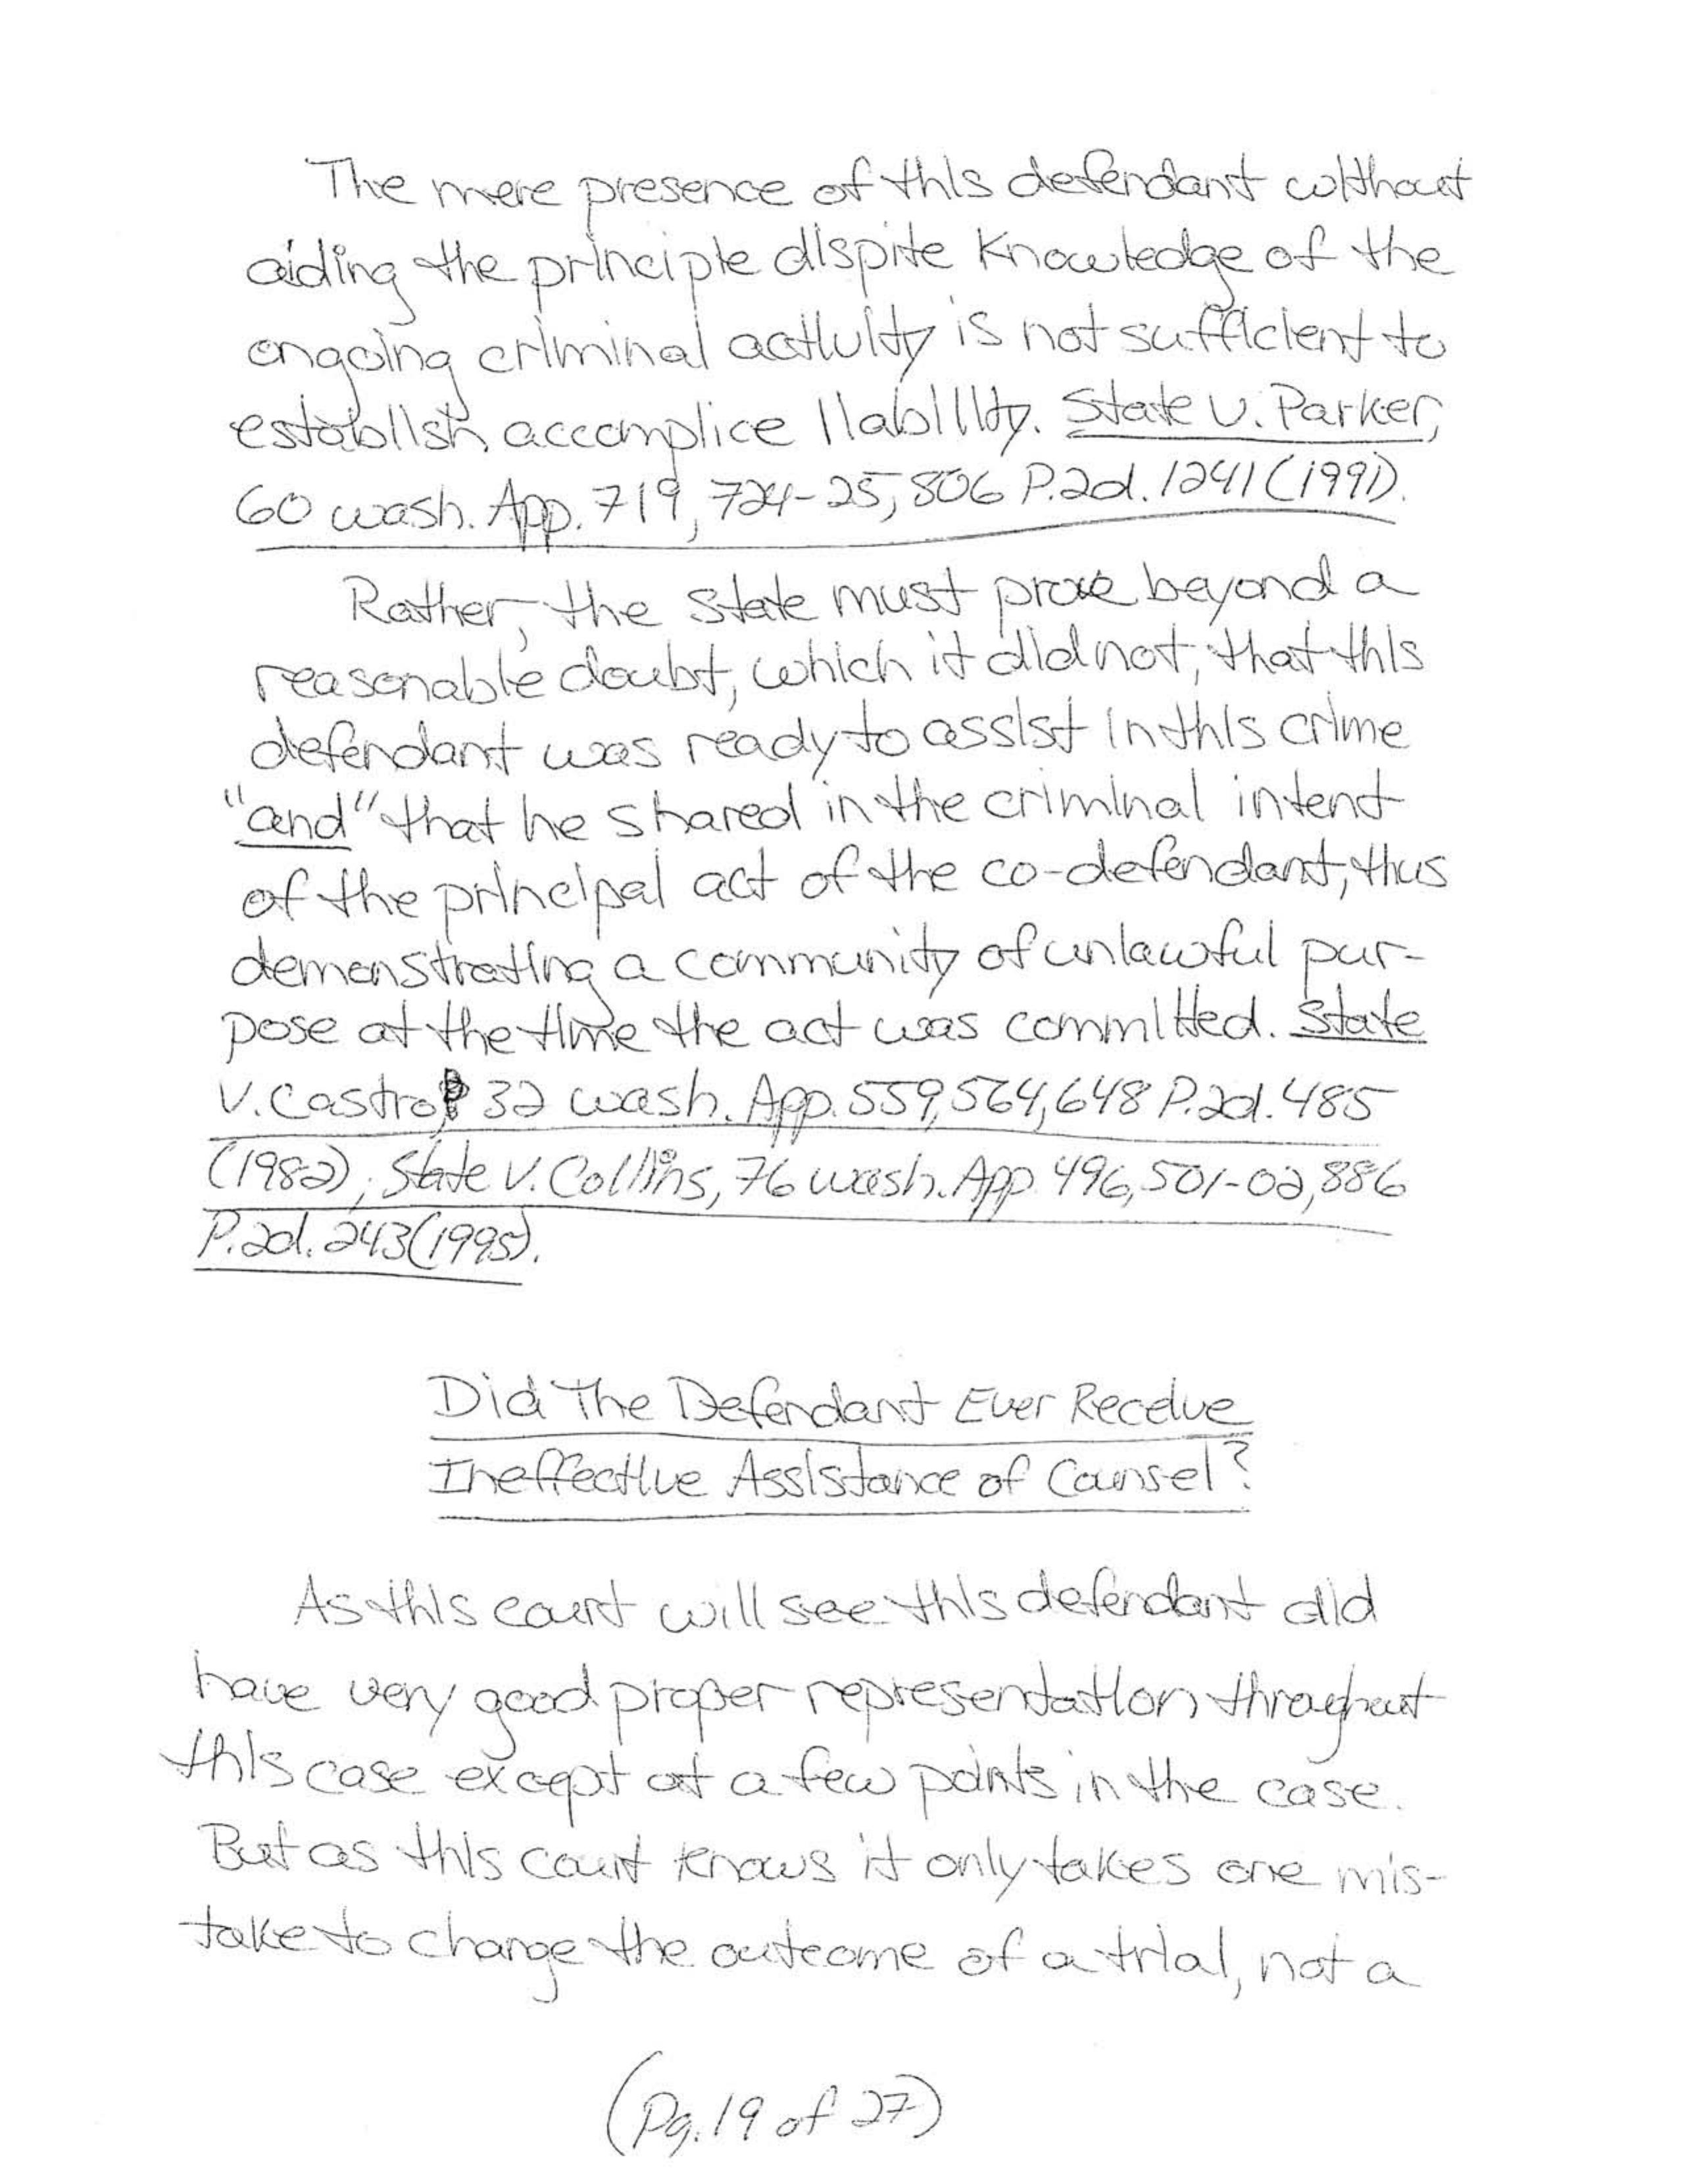 The mere presence of this defendant without
aiding the principle dispite knowledge of the
ongoing criminal activity is not sufficient to
establish accomplice liability. State v. Parker,
60 wash. App. 719, 724-25, 806 P.2d. 1241 (1991).
Rather, the State must prove beyond a
reasonable doubt, which it did not, that this
defendant was ready to assist in this crime
"and" that he shared in the criminal intent
of the principal act of the co-defendant, thus
demonstrating a community of unlawful pur-
pose at the time the act was committed. State
v. Castro, 32 wash. App. 559, 564, 648 P.2d. 485
(1982); State v. Collins, 76 wash. App. 496, 501-02, 886
P.2d. 243 (1995).
Did The Defendant Ever Receive
Ineffective Assistance of Counsel?
As this court will see this defendant did
have very good proper representation throughout
this case except at a few points in the case.
But as this court knows it only takes one mis-
take to change the outcome of a trial, not a
(Pg. 19 of 27)